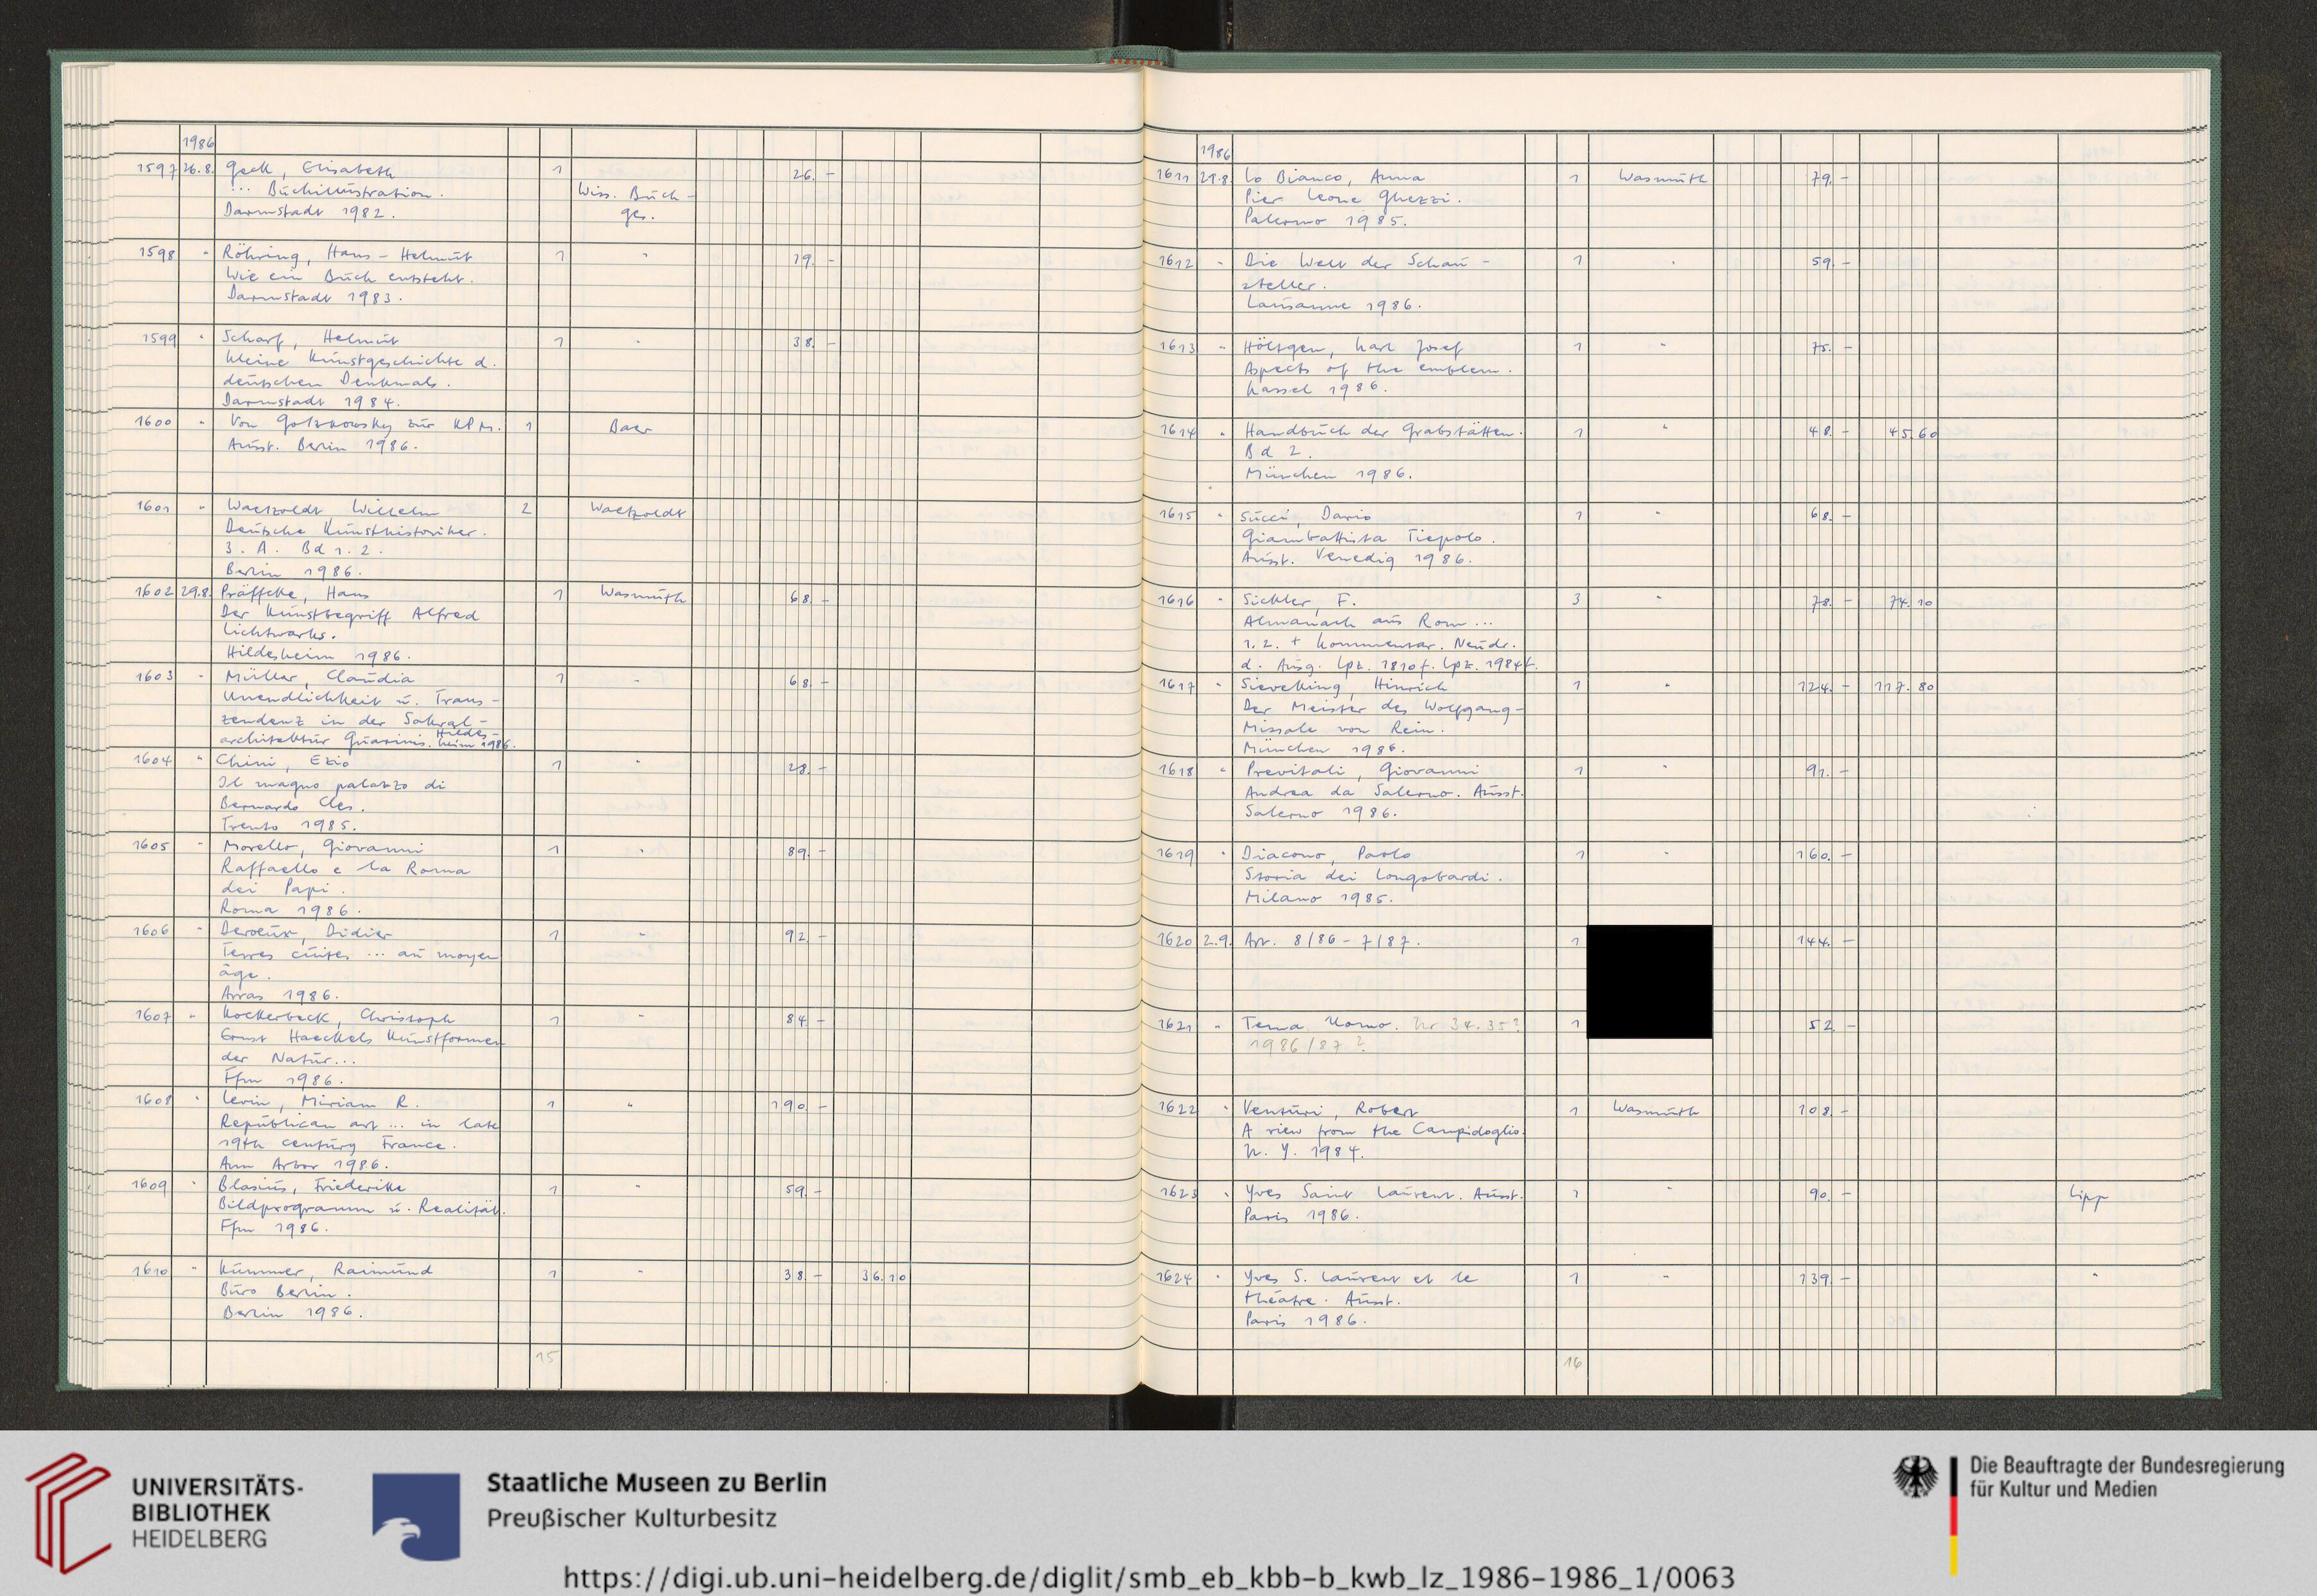 1986
1597 26.8. Geck, Elisabeth 1 26.-
... Buchillustration. Wiss. Buch-
Darmstadt 1982. ges.
1598 " Röhring, Hans-Helmut 1 " 19.-
Wie ein Buch entsteht.
Darmstadt 1983.
1599 " Scharf, Helmut 1 " 38.-
Kleine Kunstgeschichte d.
deutschen Denkmals.
Darmstadt 1984.
1600 " Von Gotzkowsky zur KPM. 1 Baer
Ausst. Berlin 1986.
1601 " Waetzoldt Wilhelm 2 Waetzoldt
Deutsche Kunsthistoriker.
3. A. Bd 1. 2.
Berlin 1986.
1602 29.8. Präffcke, Hans 1 Wasmuth 68.-
Der Kunstbegriff Alfred
Lichtwarks.
Hildesheim 1986.
1603 " Müller, Claudia 1 " 68.-
Unendlichkeit u. Trans-
zendenz in der Sakral-
architektur Guarinis. Hildes-
heim 1986.
1604 " Chini, Ezio 1 " 28.-
Il magno palazzo di
Bernardo Cles.
Trento 1985.
1605 " Morello, Giovanni 1 " 89.-
Raffaello e la Roma
dei Papi.
Roma 1986.
1606 " Deroeux, Didier 1 " 92.-
Terres cuites ... au moyen
âge.
Arras 1986.
1607 " Kockerbeck, Christoph 1 " 84.-
Ernst Haeckels Kunstformen
der Natur...
Ffm 1986.
1608 " Levin, Miriam R. 1 " 190.-
Republican art ... in late
19th century France.
Ann Arbor 1986.
1609 " Blasius, Friederike 1 " 59.-
Bildprogramm u. Realität.
Ffm 1986.
1610 " Kummer, Raimund 1 " 38.- 36.10
Büro Berlin.
Berlin 1986.
15
1986
1611 29.8. Lo Bianco, Anna 1 Wasmuth 79.-
Pier Leone Ghezzi.
Palermo 1985.
1612 " Die Welt der Schau- 1 " 59.-
steller.
Lausanne 1986.
1613 " Höltgen, Karl Josef 1 " 75.-
Aspects of the emblem.
Kassel 1986.
1614 " Handbuch der Grabstätten. 1 " 48.- 45.60
Bd 2.
München 1986.
1615 " Succi, Dario 1 " 68.-
Giambattista Tiepolo.
Ausst. Venedig 1986.
1616 " Sickler, F. 3 " 78.- 74.10
Almanach aus Rom ...
1. 2. + Kommentar. Neudr.
d. Ausg. Lpz. 1810f. Lpz. 1984f.
1617 " Sieveking, Hinrich 1 " 124.- 117.80
Der Meister des Wolfgang-
Missale von Rein.
München 1986.
1618 " Previtali, Giovanni 1 " 91.-
Andrea da Salerno. Ausst.
Salerno 1986.
1619 " Diacono, Paolo 1 " 160.-
Storia dei Longobardi.
Milano 1985.
1620 2.9. Art. 8/86 - 7/87. 1 144.-
1621 " Tema Uomo. Nr 34.35? 1 52.-
1986/87?
1622 " Venturi, Robert 1 Wasmuth 108.-
A view from the Campidoglio.
N. Y. 1984.
1623 " Yves Saint Laurent. Ausst. 1 " 90.- Lipp
Paris 1986.
1624 " Yves S. Laurent et le 1 " 139.- "
théatre. Ausst.
Paris 1986.
16
UNIVERSITÄTS-
BIBLIOTHEK
HEIDELBERG
Staatliche Museen zu Berlin
Preußischer Kulturbesitz
Die Beauftragte der Bundesregierung
für Kultur und Medien
https://digi.ub.uni-heidelberg.de/diglit/smb_eb_kbb-b_kwb_lz_1986-1986_1/0063